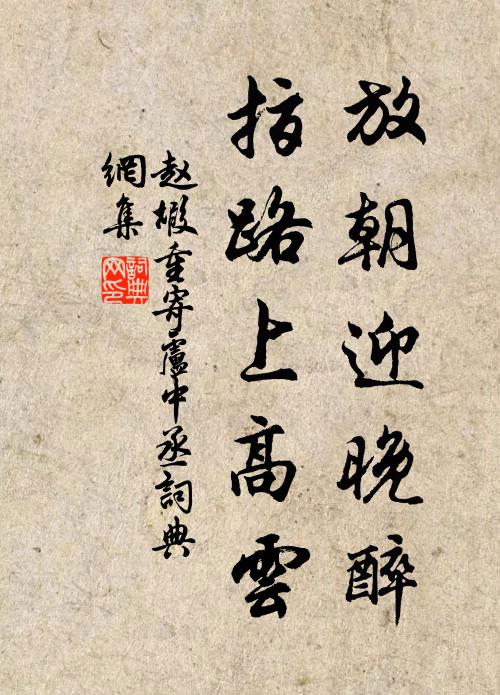 放朝迎晚醉
指路上高雲
赵嘏重寄盧中丞詞典
網集
詞典
网印